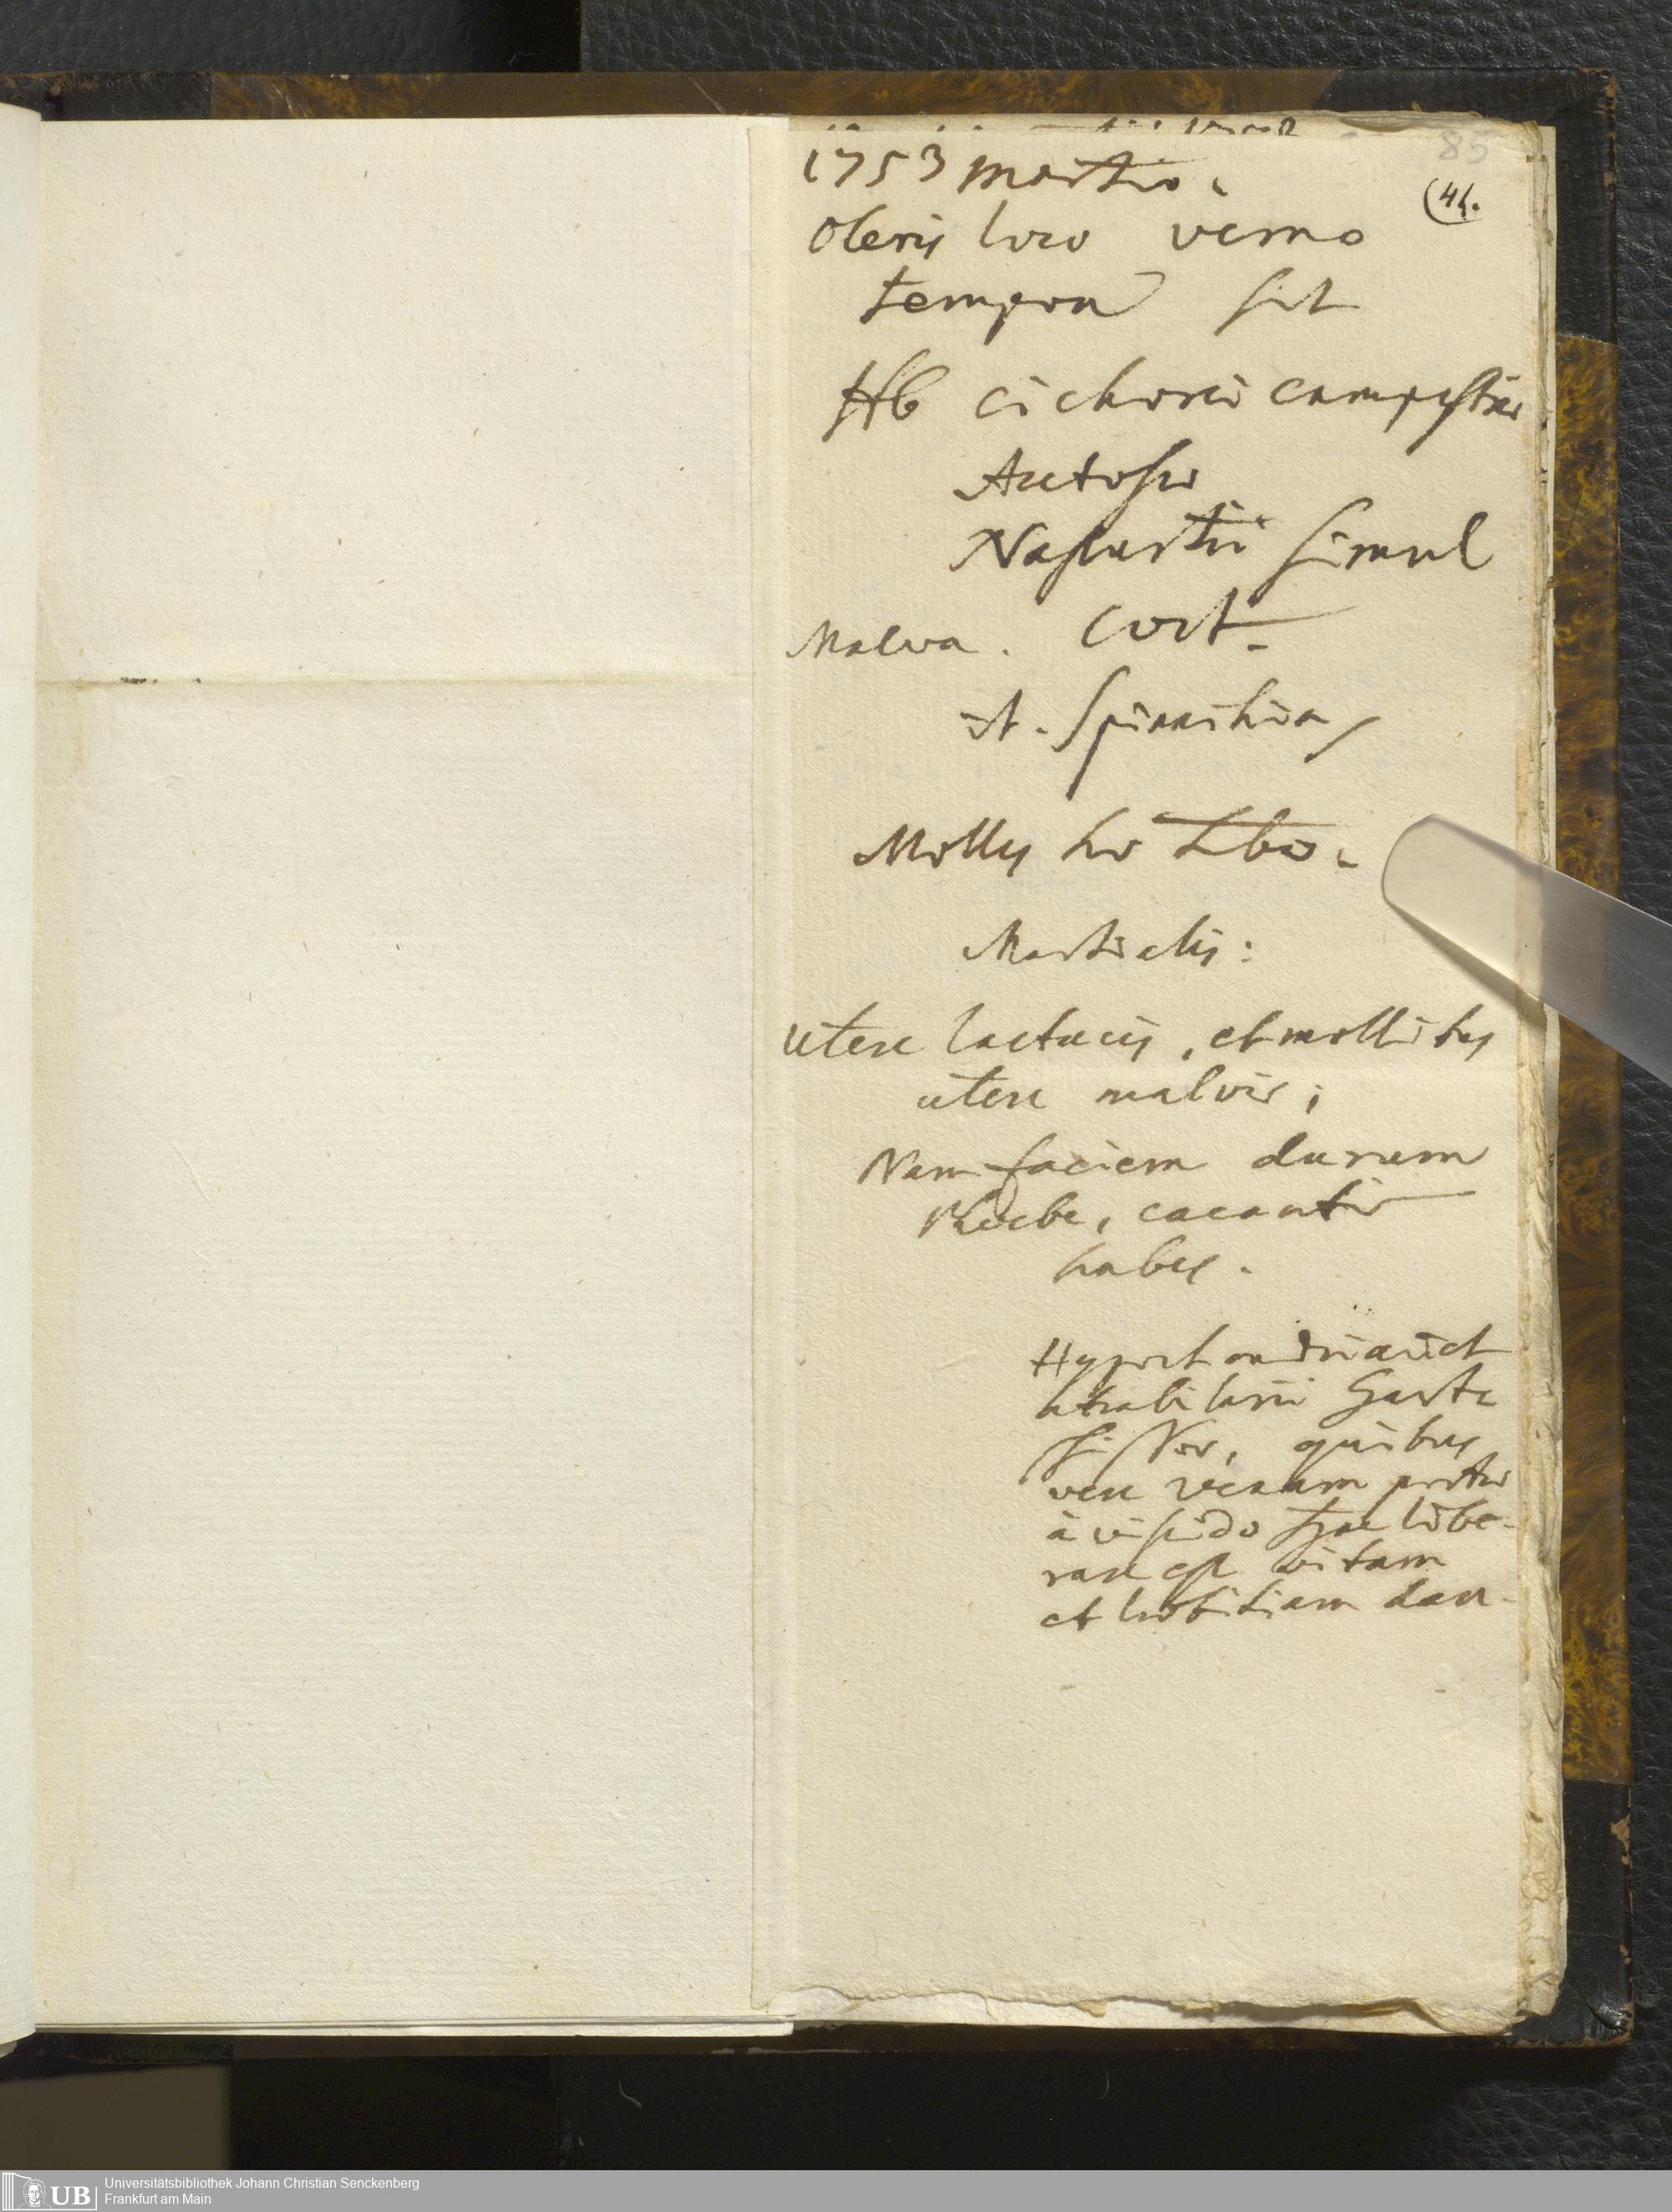 85
1753 Martio.
(41.
Oleris loco verno
tempore sit
Hb cichorei campestris
Acetosae
Nasturtii simul
Malva. Coct.
A. Spinachia
Mollis
Martialis:
Utere lactucis, et mollibus
utere malvis;
Nam faciem durum
Phoebe, cacantis
habes.
Hypochondriaci et
atrabilarii
quibus
venam
a viscido libe-
rare est vitam
et laetitiam dare.
Universitätsbibliothek Johann Christian Senckenberg
UB Frankfurt am Main